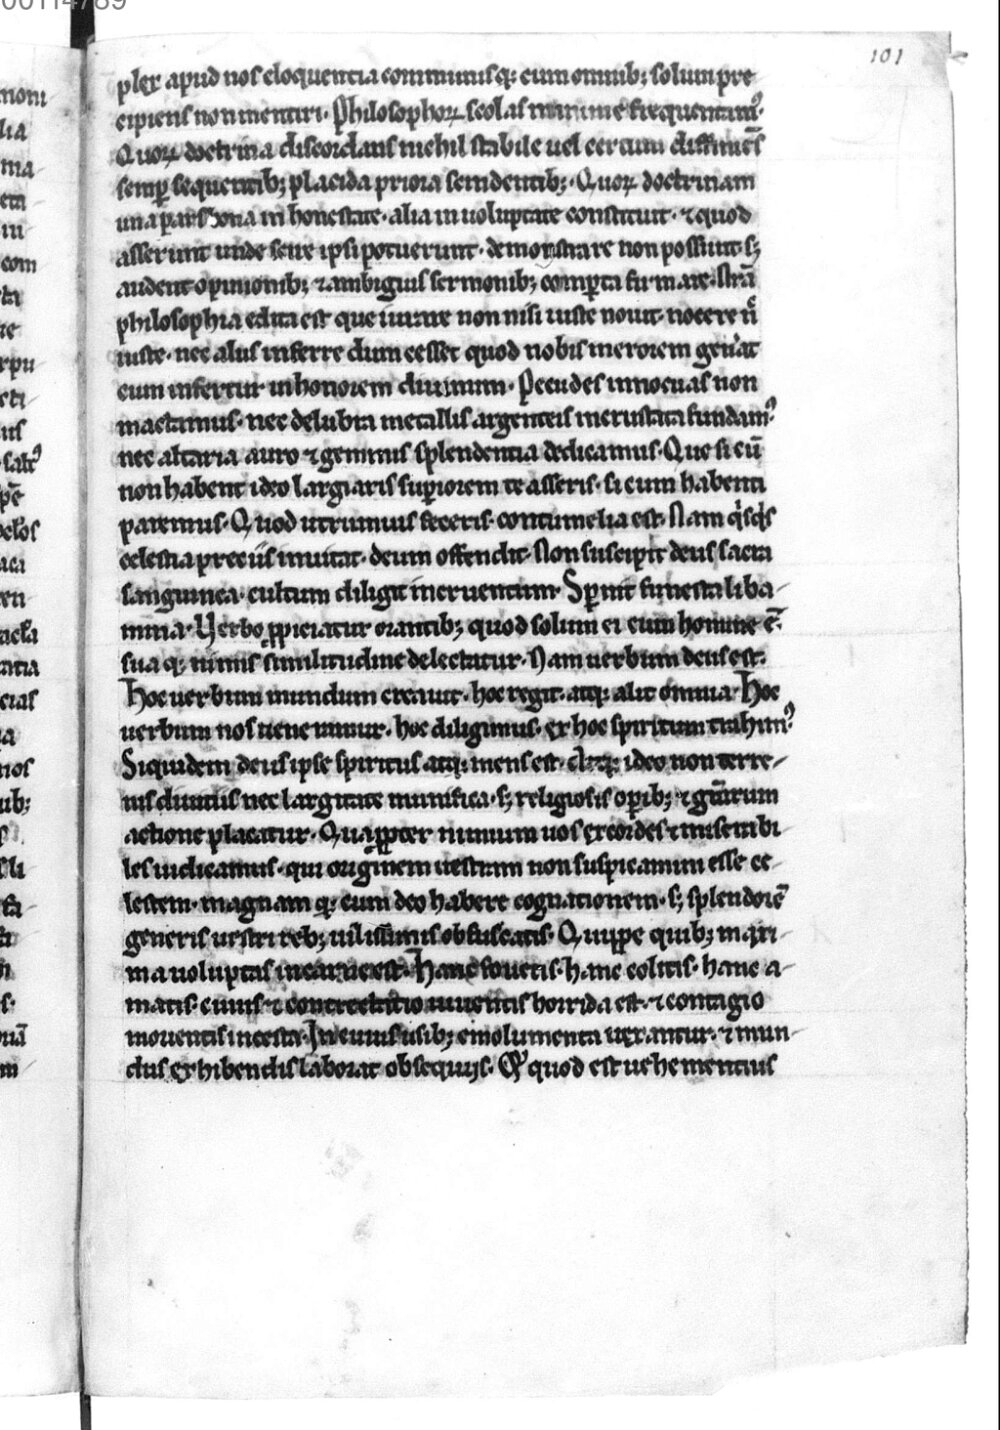 101
plex apud nos eloquencia communisq; cum omnib; solum pre
cipiens non mentiri. Philosophoꝝ scolas minime frequentamꝰ.
Quoꝝ doctrina discordans nichil stabile uel certum diffiniēs
semꝑ sequentib; placida priora scindentib;. Quoꝝ doctrinam
una pars bona in honestate. alia in uoluptate constituit. ⁊ quod
asserunt unde scire ipsi potuerunt. demonstrare non possunt. s;
audent opinionib; ⁊ ambiguis sermonib; comꝑta firmare. Nr̄a
philosophia edita est que iuuare non nisi iuste nouit. nocere n̄
iuste. nec aliis inferre dum cesset quod nobis merorem gen̾at
cum infertur in honorem diuinum. Pecudes innocuas non
mactamus. nec delubra metallis argenteis incrustata fundamꝰ
nec altaria auro ⁊ gemmis splendentia dedicamus. Que si cū
non habent ideo largiaris suꝑiorem te asseris. si cum habenti
paremus. Quod utrumuis feceris. contumelia est. Nam qͥsqͥs
celestia preciis inuitat. deum offendit. Non suscipit deus sacra
sanguinea. cultum diligit incruentum. Sꝑnit funesta liba-
mina. Uerbo ꝓpiciatur orantib; quod solum ei cum homine ē.
suaq; nimis similitudine delectatur. Nam uerbum deus est.
Hoc uerbum mundum creauit. hoc regit. atq; alit omnia. Hoc
uerbum nos ueneramur. hoc diligimus. ex hoc spiritum trahimꝰ
Siquidem deus ipse spiritus atq; mens est. ideo non terre-
nis diuitiis nec largitate munifica. s; religiosis oꝑib; ⁊ gr̄arum
actione placatur. Quaꝓpter nimium uos excordes ⁊ miserabi
les iudicamus. qui originem uestram non suspicamini esse ce-
lestem. magnam q; cum deo habere cognationem. s; splendorē
generis uestri reb; uilissimis obfuscatis. Quippe quib; maxi-
ma uoluptas in carne est. Hanc fouetis. hanc colitis. hanc a-
matis. cuius ⁊ contrectatio uiuentis horrida est. ⁊ contagio
morientis incesta. In cuius usib; emolumenta uexantur. ⁊ mun-
dus exhibendis laborat obsequiis. quod est uehementius